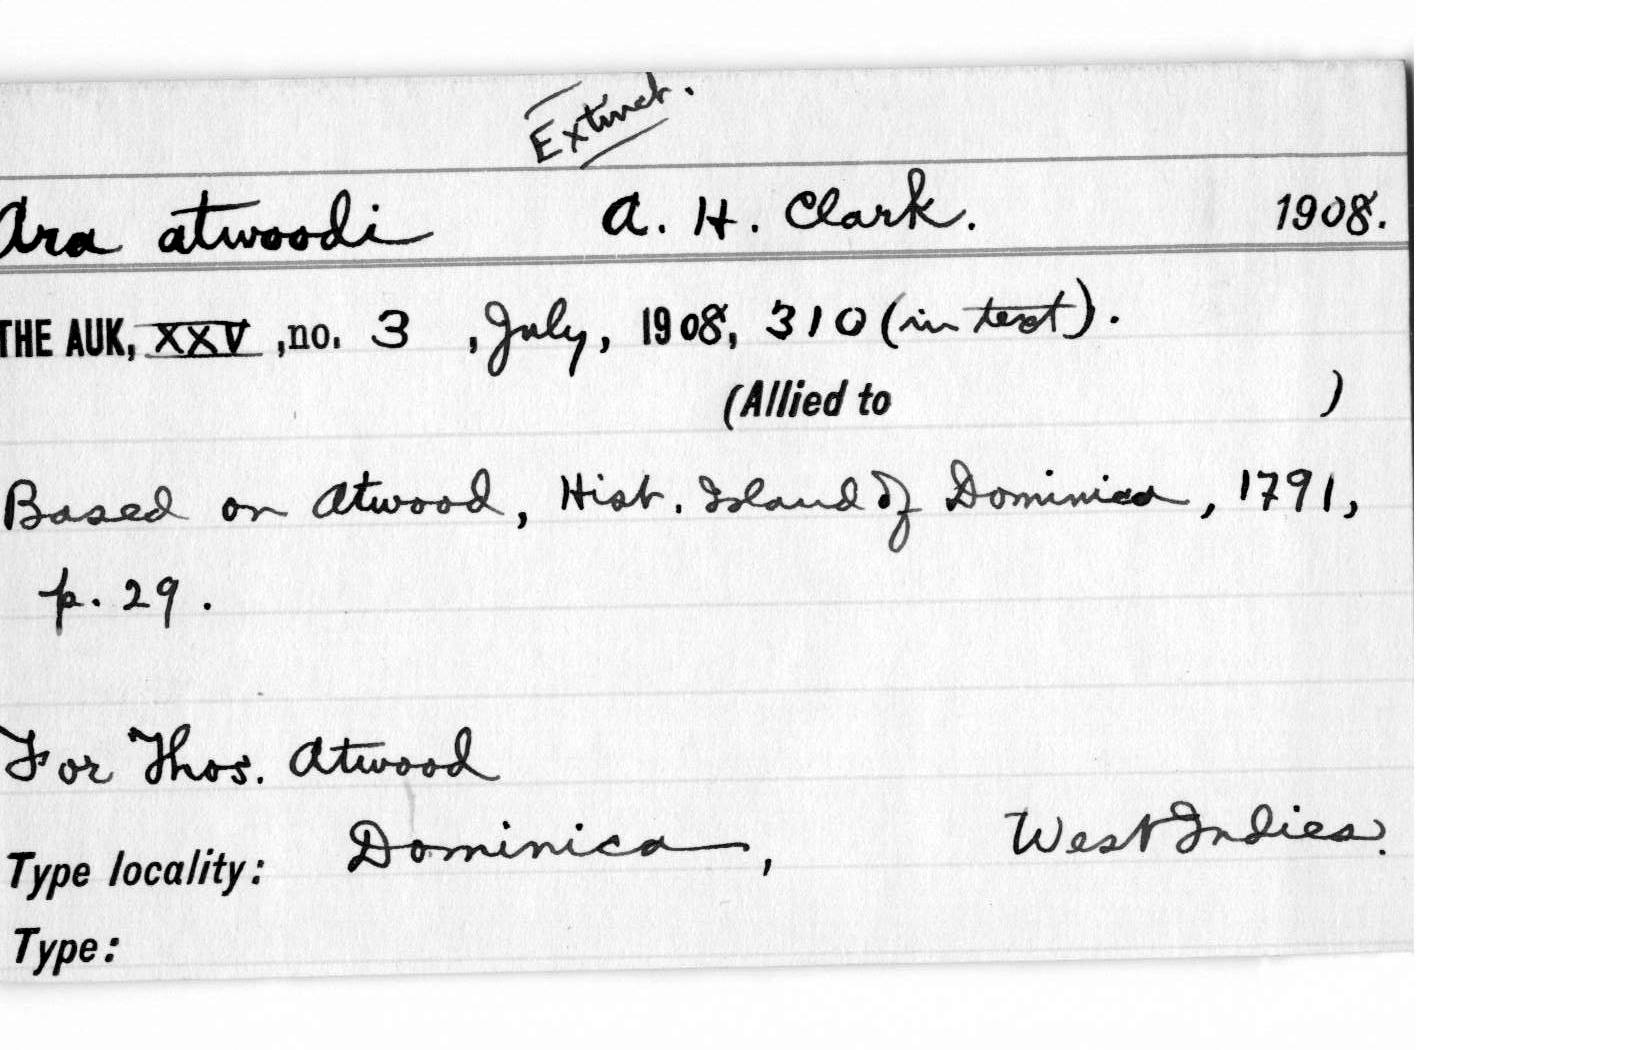 Extinct.
Ara atwoodi A. H. Clark. 1908.
THE AUK, XXV, no. 3, July, 1908, 310 (in text).
(Allied to )
Based on Atwood, Hist. Island of Dominica, 1791,
p. 29.
For Thos. Atwood
Type locality: Dominica, West Indies.
Type: